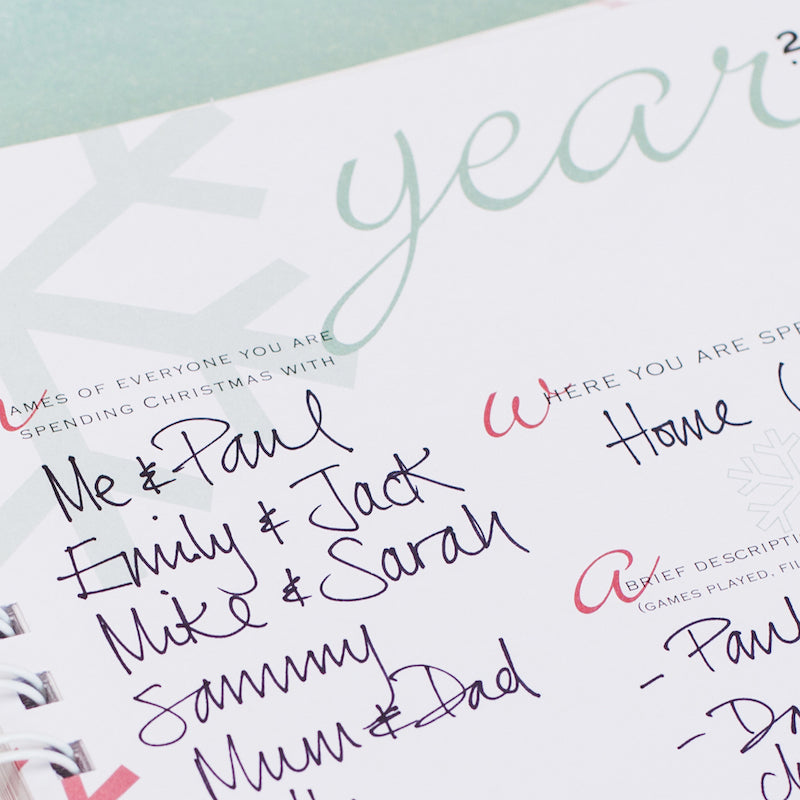 year
NAMES OF EVERYONE YOU ARE
SPENDING CHRISTMAS WITH
Me & Paul
Emily & Jack
Mike & Sarah
Sammy
Mum & Dad
WHERE YOU ARE
Home
A BRIEF
(GAMES PLAYED,
- Paul
-